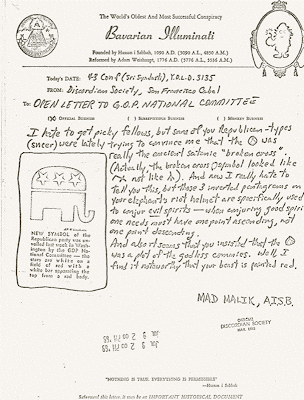 The World's Oldest And Most Successful Conspiracy
Bavarian Illuminati
Founded by Hassan i Sabbah, 1090 A.D. (5090 A.L., 4850 A.M.)
Reformed by Adam Weishaupt, 1776 A.D. (5776 A.L., 5536 A.M.)
Today's DATE: 43 Conf (Sri Syadasti), Y.O.L.D. 3135
FROM: Discordian Society, San Francisco Cabal
To: OPEN LETTER TO G.O.P. NATIONAL COMMITTEE
OFFICIAL BUSINESS ( ) SURREPTITIOUS BUSINESS ( ) MONKEY BUSINESS
I hate to get picky fellows, but some of you Republican-types
(sneer) were lately trying to convince me that the ☮ was
really the ancient satanic "broken cross".
(Actually, the broken cross symbol looked like
not like the ☮). And now I really hate to
tell you this, but those 3 inverted pentagrams on
your elephant's riot helmet are specifically used
to conjur evil spirits — when conjuring good spirits
one needs must have one point ascending, not
one point descending.
And also it seems that you insisted that the ☮
was a plot of the godless commies. Well I
find it noteworthy that your beast is painted red.
NEW SYMBOL of the
Republican party was un-
veiled last week in Wash-
ington by the GOP Na-
tional Committee — the
stars are white on a
field of red with a
white bar separating the
top from a red body.
MAD MALIK, A.I.S.B.
OFFICIAL
DISCORDIAN SOCIETY
"NOTHING IS TRUE. EVERYTHING IS PERMISSIBLE"
—Hassan i Sabbah
this letter, it may be an IMPORTANT HISTORICAL DOCUMENT